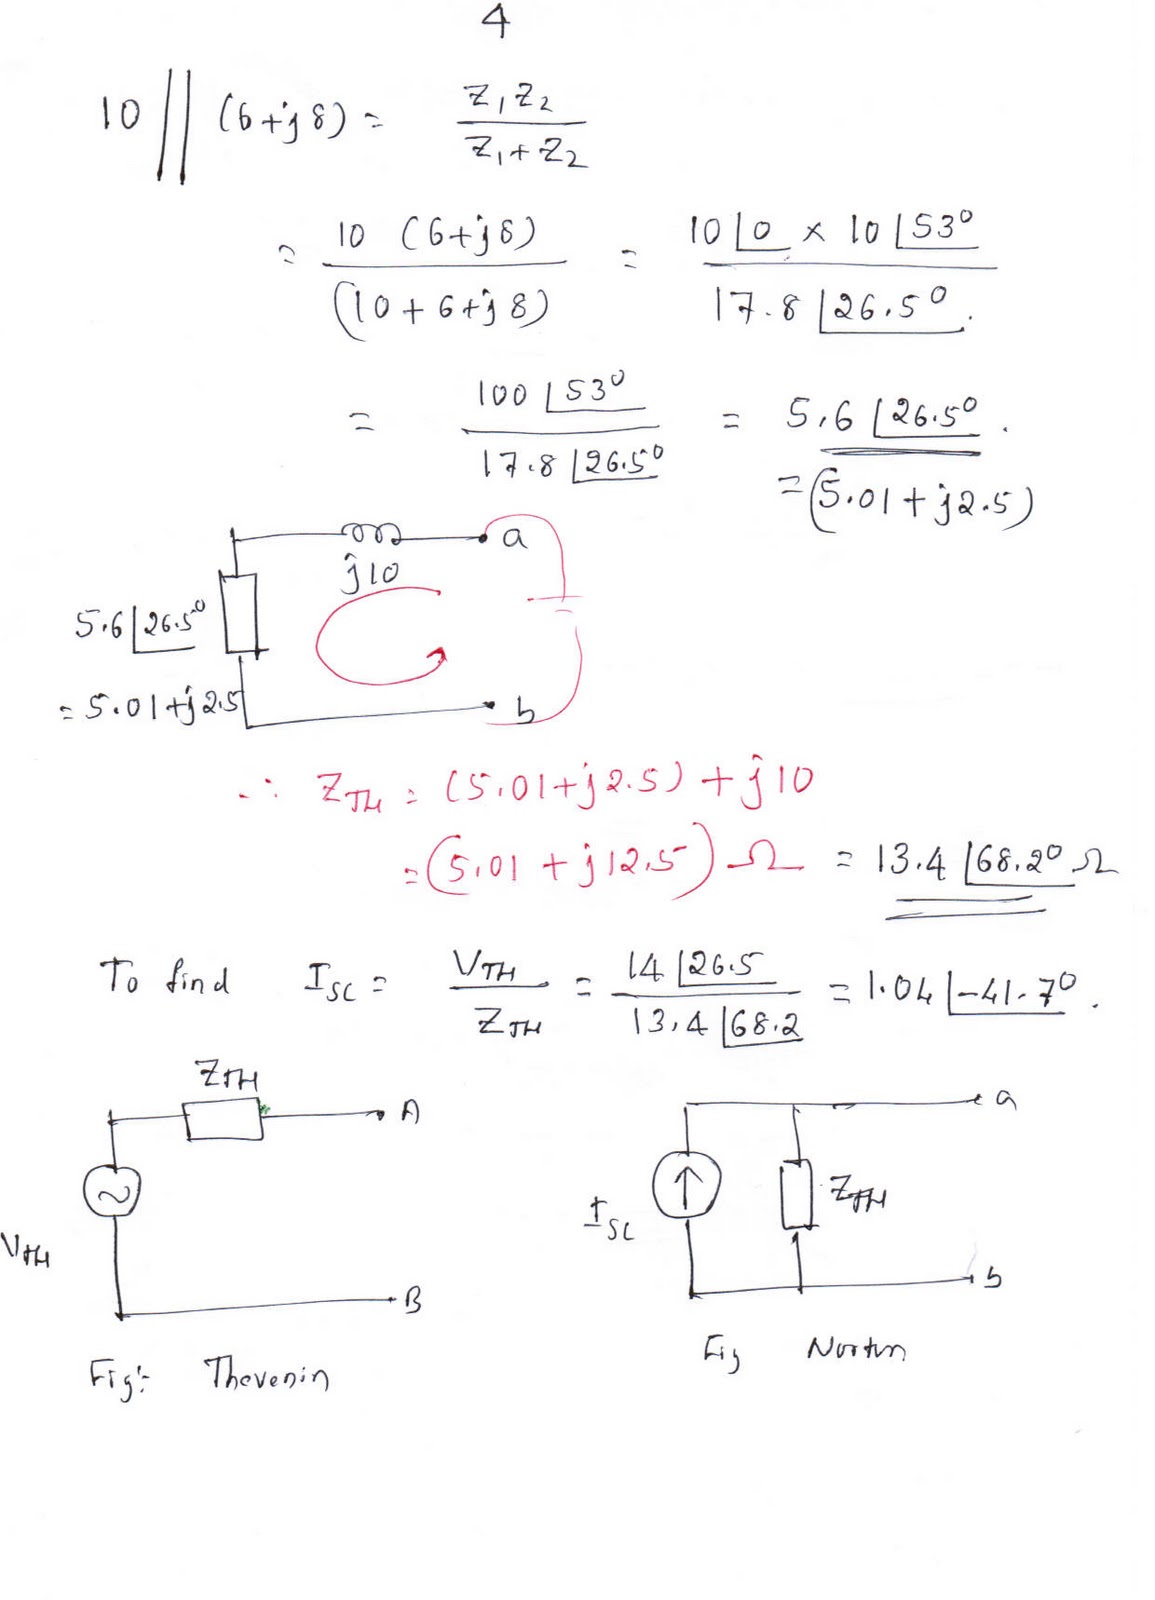 4
10 || (6+j8) = Z1Z2 / Z1+Z2
= 10 (6+j8) / (10+6+j8) = 10∠0 × 10∠53° / 17.8∠26.5°.
= 100∠53° / 17.8∠26.5° = 5.6∠26.5°.
=(5.01+j2.5)
a
j10
5.6∠26.5°
= 5.01+j2.5
b
∴ ZTH = (5.01+j2.5)+j10
=(5.01+j12.5)Ω = 13.4∠68.2°Ω
To find ISC = VTH / ZTH = 14∠26.5 / 13.4∠68.2 = 1.04∠-41.7°.
ZTH
A
a
ZTH
ISC
VTH
b
B
Fig Norton
Fig:- Thevenin